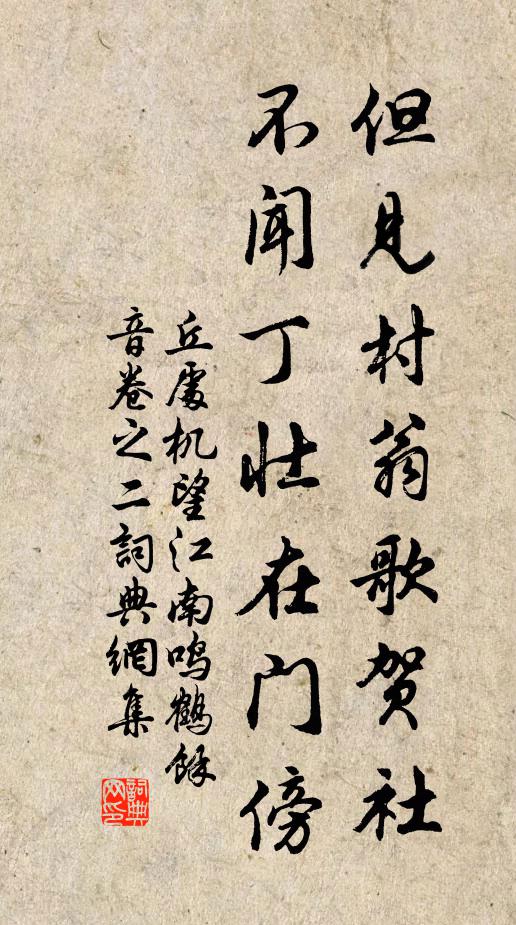 但見村翁歌贺社
不闻丁壮在门傍
丘處机望江南鸣鶴餘
音卷之二詞典網集
詞典网印